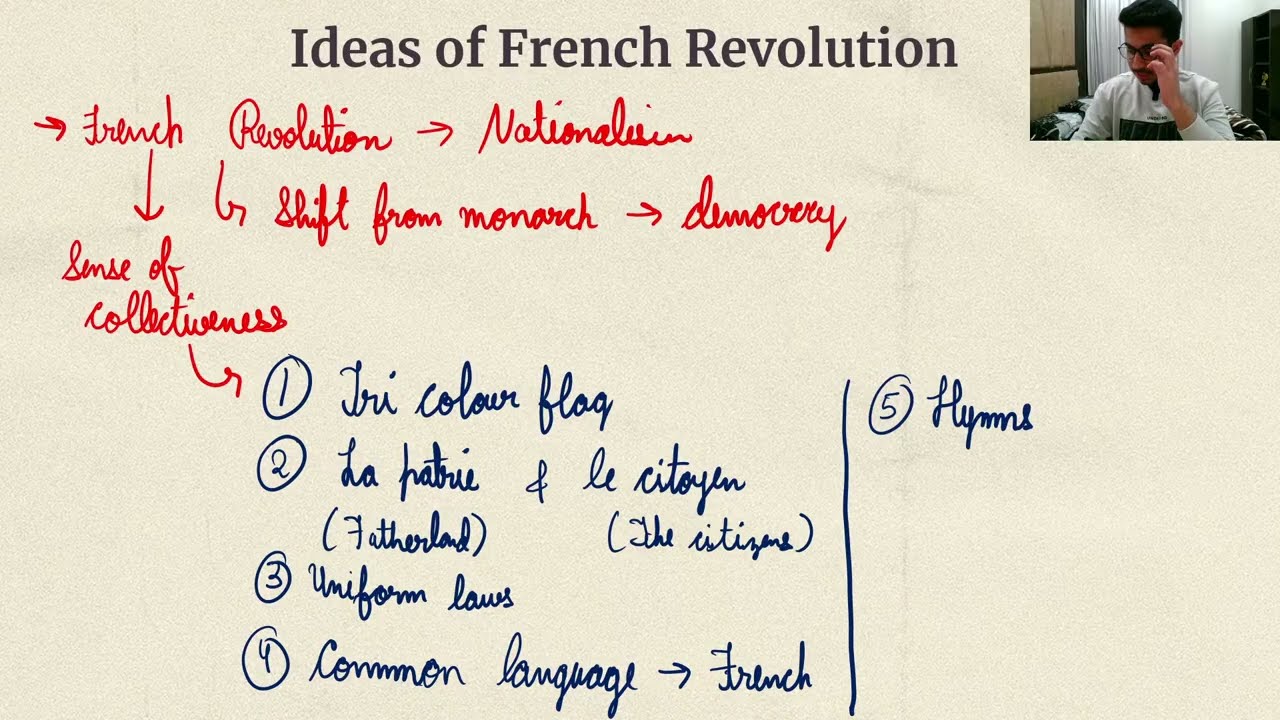 Ideas of French Revolution
→ French Revolution → Nationalism
↳ Shift from monarch → democrcy
Sense of
collectiveness
① Tri colour flag
② La patrie & le citoyen
(Fatherland) (The citizens)
③ Uniform laws
④ Common language → French
⑤ Hymns